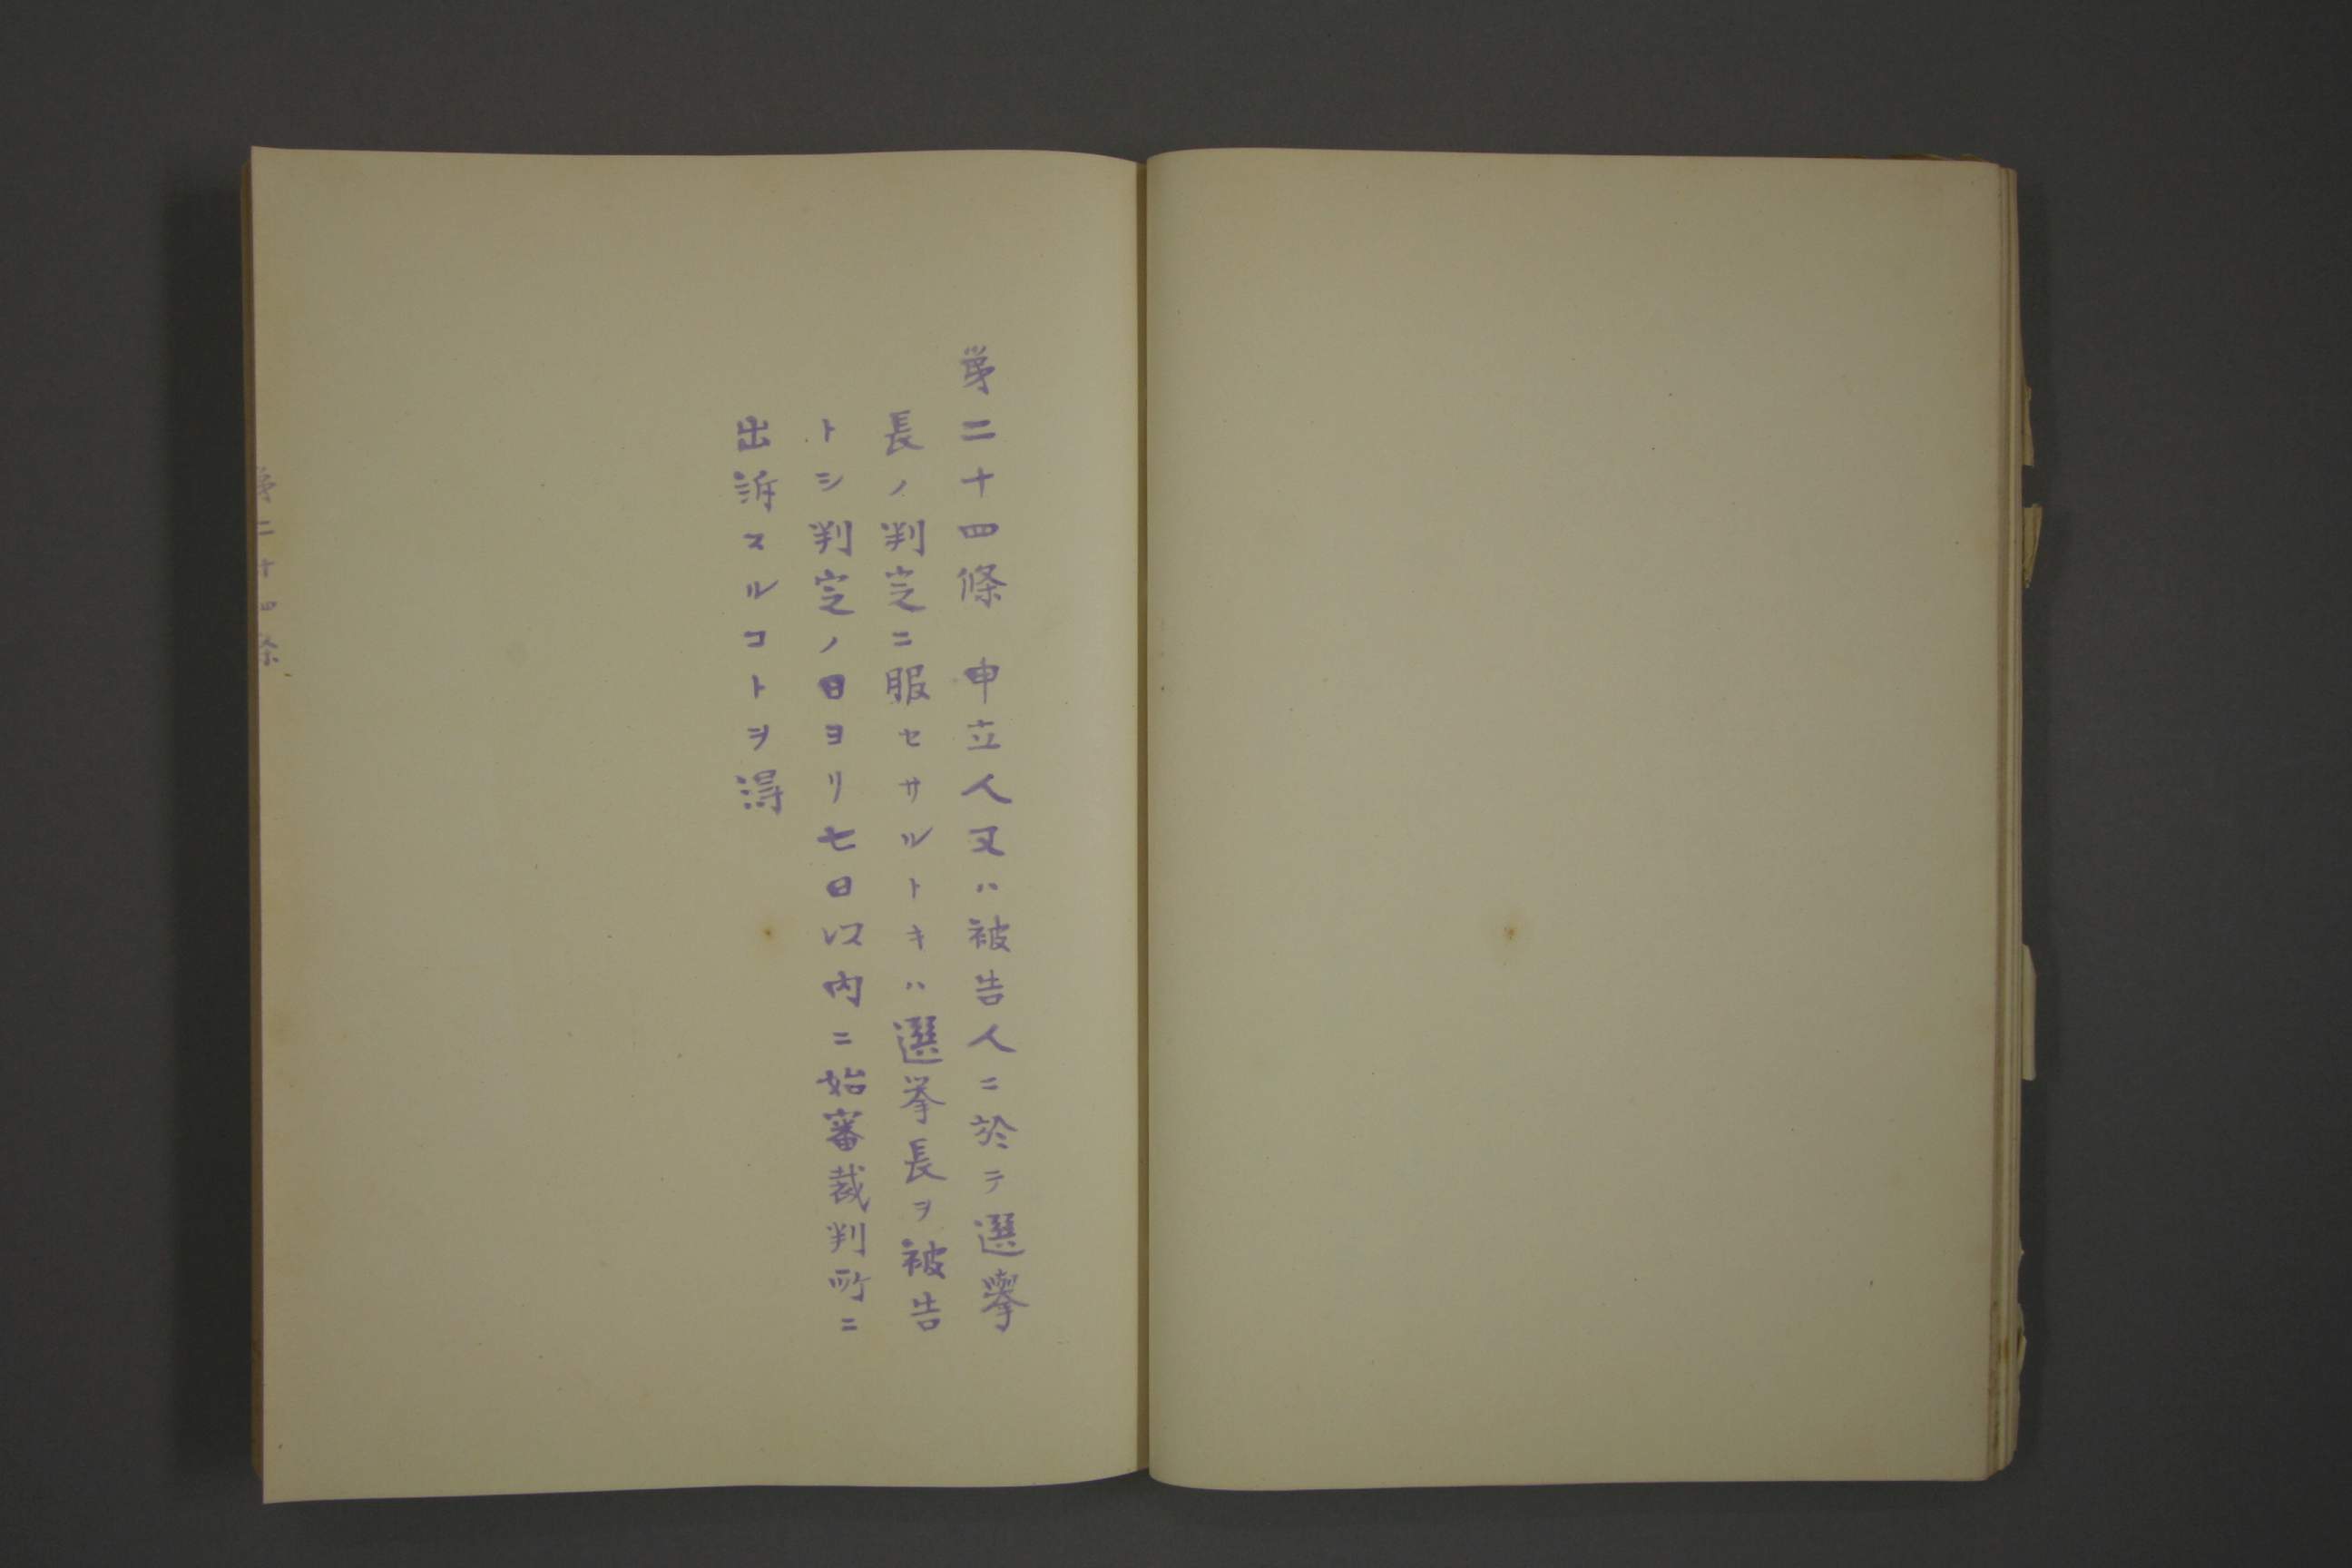 第二十四條　申立人又ハ被告人ニ於テ選擧
長ノ判定ニ服セサルトキハ選挙長ヲ被告
トシ判定ノ日ヨリ七日以内ニ始審裁判所ニ
出訴スルコトヲ得
第二十四条